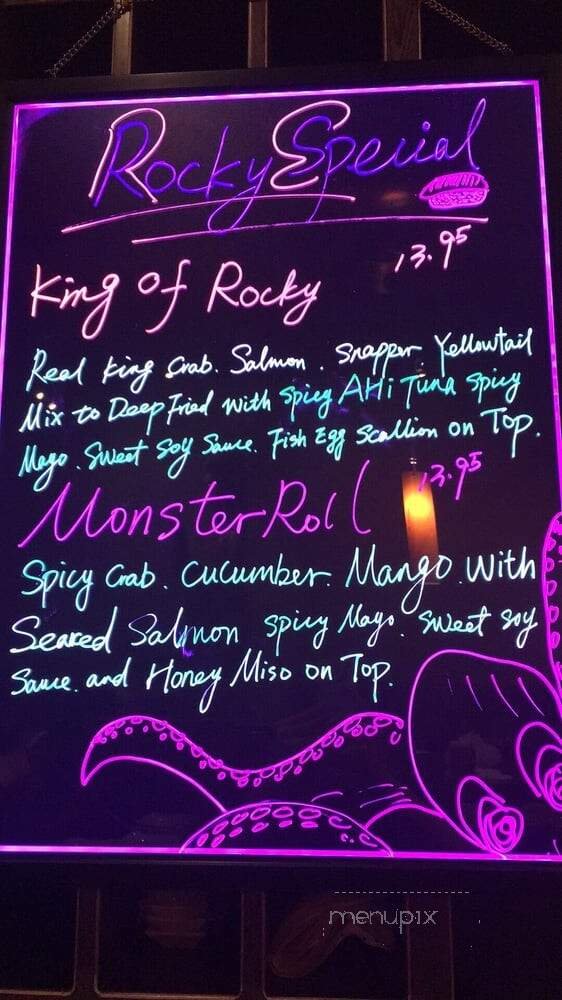 Rocky Special
King of Rocky 13.95
Real King Crab. Salmon. Snapper. Yellowtail
Mix to Deep Fried with Spicy AHi Tuna Spicy
Mayo. Sweet Soy Sauce. Fish Egg Scallion on Top.
Monster Roll 13.95
Spicy Crab. Cucumber. Mango. With
Seared Salmon Spicy Mayo. Sweet Soy
Sauce. and Honey Miso on Top.
menupix